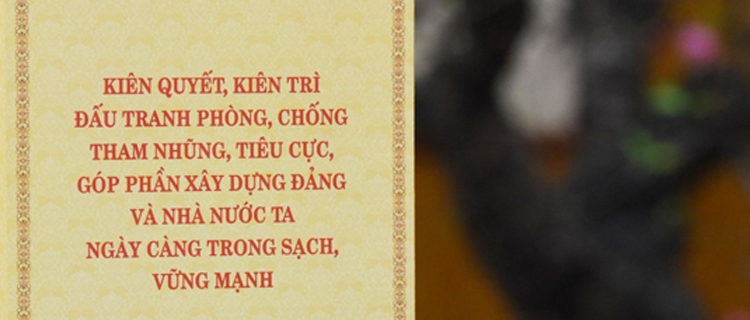 KIÊN QUYẾT, KIÊN TRÌ
ĐẤU TRANH PHÒNG, CHỐNG
THAM NHŨNG, TIÊU CỰC,
GÓP PHẦN XÂY DỰNG ĐẢNG
VÀ NHÀ NƯỚC TA
NGÀY CÀNG TRONG SẠCH,
VỮNG MẠNH